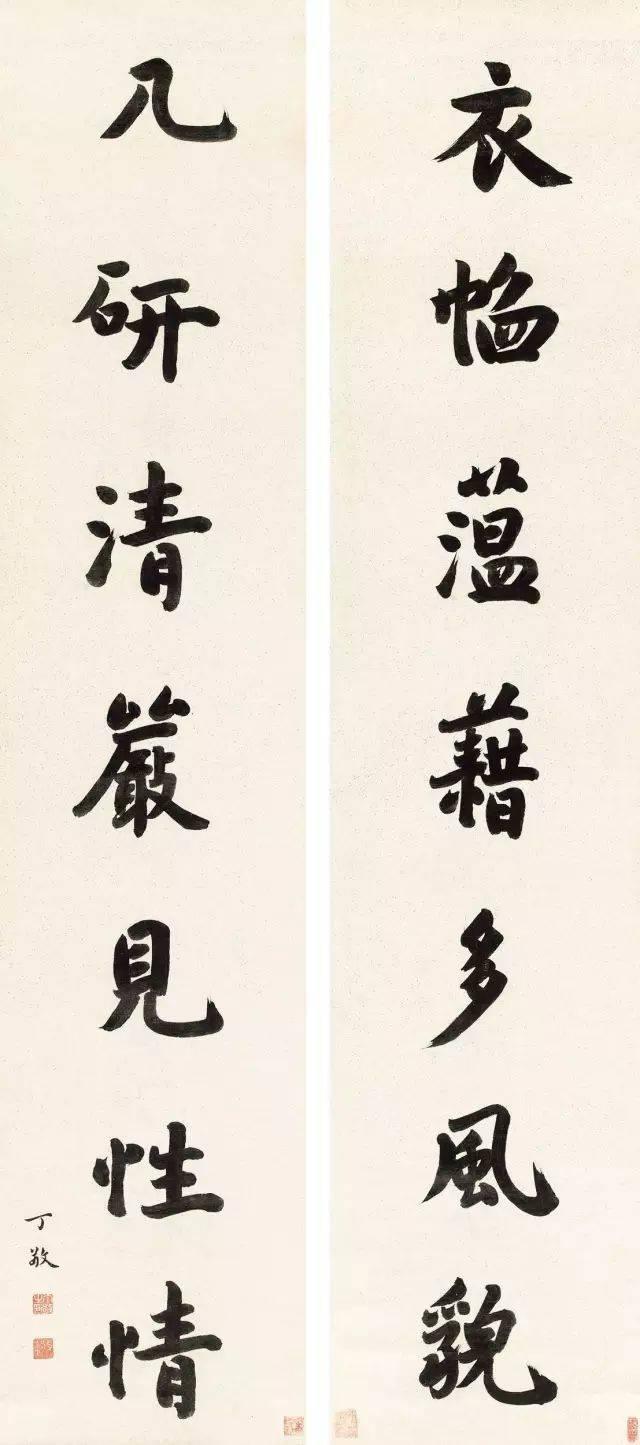 衣帢蕰藉多風貌
几研清嚴見性情
丁敬